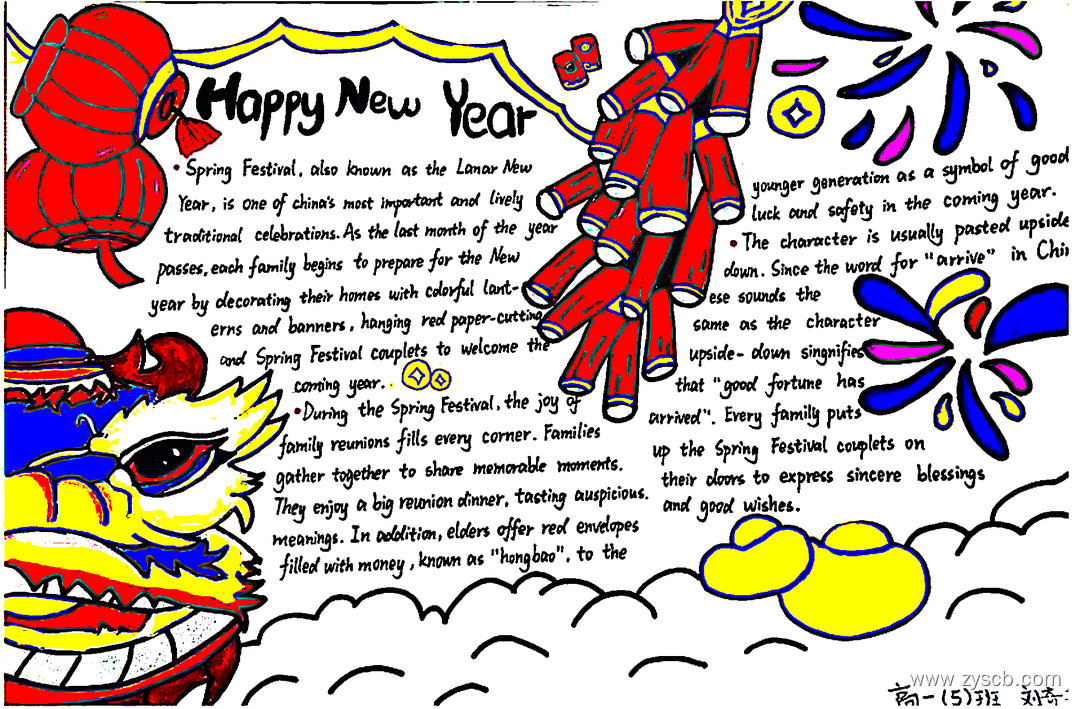 Happy New Year
• Spring Festival, also known as the Lanar New
Year, is one of china's most important and lively
traditional celebrations. As the last month of the year
passes, each family begins to prepare for the New
year by decorating their homes with colorful lant-
erns and banners, hanging red paper-cutting
and Spring Festival couplets to welcome the
coming year.
• During the Spring Festival, the joy of
family reunions fills every corner. Families
gather together to share memorable moments.
They enjoy a big reunion dinner, tasting auspicious.
meanings. In addition, elders offer red envelopes
filled with money, known as "hongbao", to the
younger generation as a symbol of good
luck and safety in the coming year.
• The character is usually pasted upside
down. Since the word for "arrive" in Chin
ese sounds the
same as the character
upside-down singnifies
that "good fortune has
arrived". Every family puts
up the Spring Festival couplets on
their doors to express sincere blessings
and good wishes.
www.zyscb.com
高一(5)班